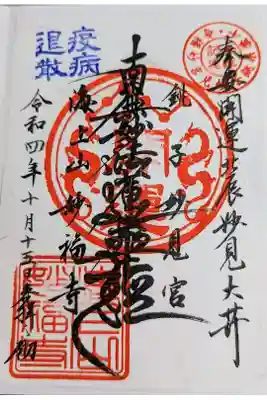 奉安開運北辰妙見大菩薩
銚子妙見宮
南無妙法蓮華経
海上山妙福寺
令和四年十月十五日
疫病
退散